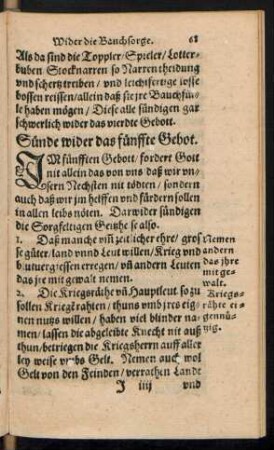 Wider die Bauchsorge. 68
Als da sind die Toppler/ Spieler/ Lotter-
buben Stocknarren so Narrentheidung
vnd schertz treiben/ vnd leichtfertige
bossen reissen/ allein daß sie jre Bauchfül-
le haben mögen/ Diese alle sündigen gar
schwerlich wider das vierdte Gebott.
Sünde wider das fünffte Gebot.
IM fünfften Gebott/ fordert Gott
nit allein das von vns daß wir vn-
sern Nechsten nit tödten/ sondern
auch daß wir jm helffen vnd fürdern sollen
in allen leibs nöten. Darwider sündigen
die Sorgfeltigen Geitzhe also.
1. Daß manche vm̃ zeitlicher ehre/ gros
se güter/ land vnnd Leut willen/ Krieg vnd
blutuergiessen erregen/ vñ andern Leuten
das jre mit gewalt nemen.
Nemen
andern
das jhre
mit ge-
walt.
2. Die Kriegsrähte vñ Hauptleut so zu
sollen Kriegkrahten/ thuns vmb jres eig-
nen nutz willen/ haben viel blinder na-
men/ lassen die abgeleibte Knecht nit auß
thun/ betriegen die Kriegsherrn auff aller
ley weise vmbs Gelt. Nemen auch wol
Gelt von den Feinden/ verrathen Landt
Kriegs-
rähte ei-
gennü-
tzig.
I iiij vnd